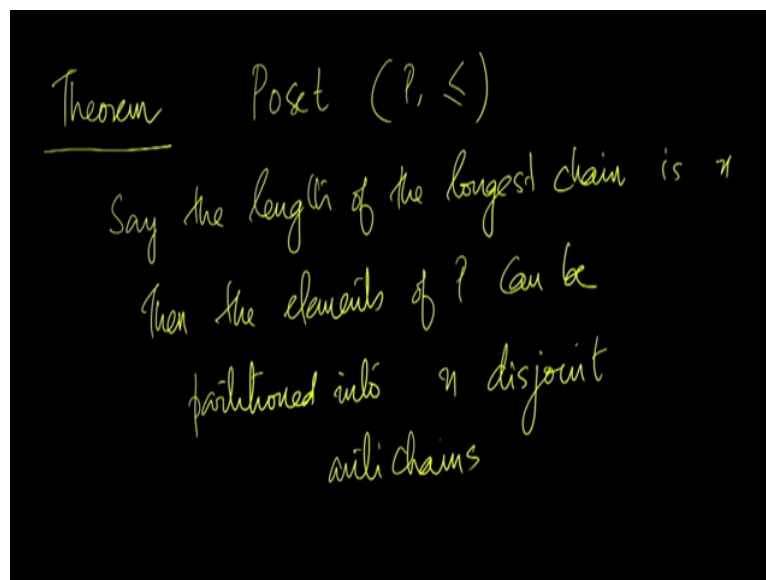 Theorem Poset (P, ≤)
Say the length of the longest chain is n
Then the elements of P can be
partitioned into n disjoint
antichains